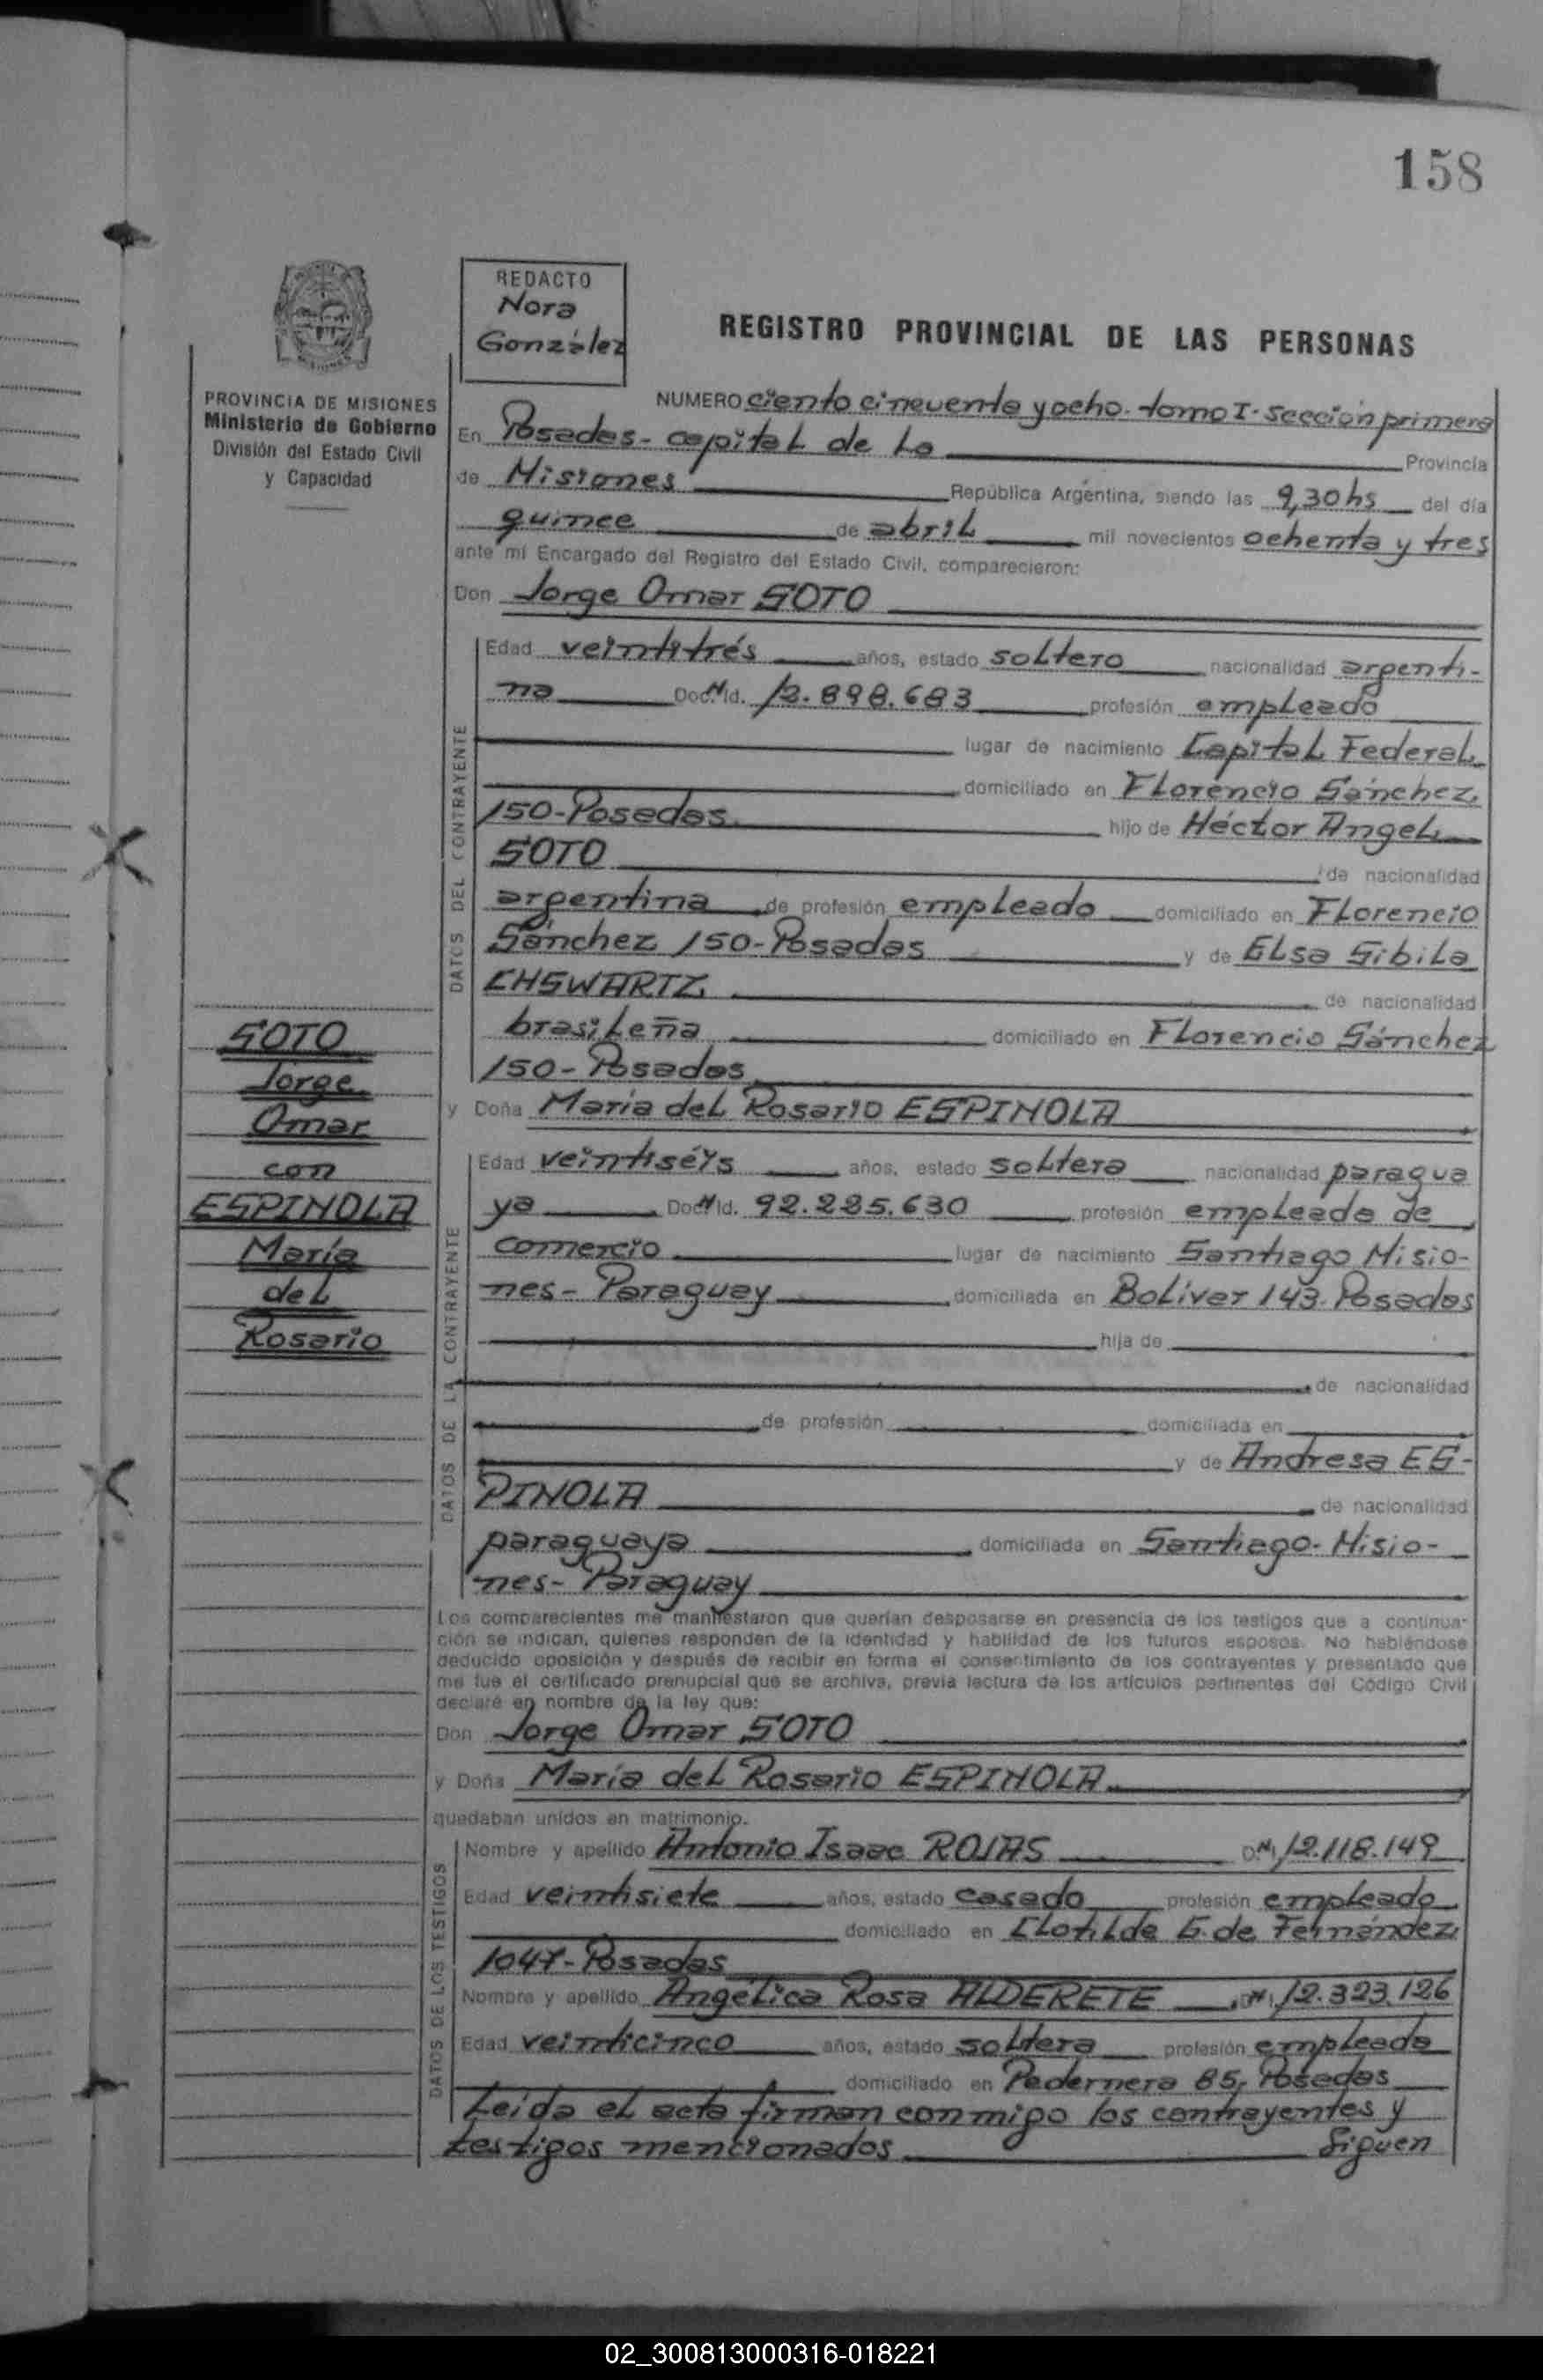 158
REDACTO
Nora
González
REGISTRO PROVINCIAL DE LAS PERSONAS
PROVINCIA DE MISIONES
Ministerio de Gobierno
División del Estado Civil
y Capacidad
NUMERO ciento cincuenta y ocho- tomo I- sección primera
En Posadas- capital de la Provincia
de Misiones República Argentina, siendo las 9,30 hs del día
quince de abril mil novecientos ochenta y tres
ante mí Encargado del Registro del Estado Civil, comparecieron:
Don Jorge Omar SOTO
DATOS DEL CONTRAYENTE
Edad veintitrés años, estado soltero nacionalidad argenti-
na Doc. Id. 12.898.683 profesión empleado
lugar de nacimiento Capital Federal
domiciliado en Florencio Sánchez
150-Posadas hijo de Héctor Angel
SOTO de nacionalidad
argentina de profesión empleado domiciliado en Florencio
Sánchez 150-Posadas y de Elsa Sibila
CHSWARTZ de nacionalidad
brasileña domiciliado en Florencio Sánchez
150- Posadas
y Doña María del Rosario ESPINOLA
SOTO
Jorge
Omar
con
ESPINOLA
María
del
Rosario
DATOS DE LA CONTRAYENTE
Edad veintiséis años, estado soltera nacionalidad paragua
ya Doc. Id. 92.225.630 profesión empleada de
comercio lugar de nacimiento Santiago Misio-
nes- Paraguay domiciliada en Bolívar 143- Posadas
hija de
de nacionalidad
de profesión domiciliada en
y de Andresa ES-
PINOLA de nacionalidad
paraguaya domiciliada en Santiago- Misio-
nes- Paraguay
Los comparecientes me manifestaron que querían desposarse en presencia de los testigos que a continua-
ción se indican, quienes responden de la identidad y habilidad de los futuros esposos. No habiéndose
deducido oposición y después de recibir en forma el consentimiento de los contrayentes y presentado que
me fue el certificado prenupcial que se archiva, previa lectura de los artículos pertinentes del Código Civil
declaré en nombre de la ley que:
Don Jorge Omar SOTO
y Doña María del Rosario ESPINOLA
quedaban unidos en matrimonio.
DATOS DE LOS TESTIGOS
Nombre y apellido Antonio Isaac ROJAS DNI 12.118.149
Edad veintisiete años, estado casado profesión empleado
domiciliado en Clotilde G. de Fernández
1047-Posadas
Nombre y apellido Angélica Rosa ALDERETE DNI 12.323.126
Edad veinticinco años, estado soltera profesión empleada
domiciliado en Pedernera 85, Posadas
Leida el acta firman conmigo los contrayentes y
testigos mencionados Siguen
02_300813000316-018221